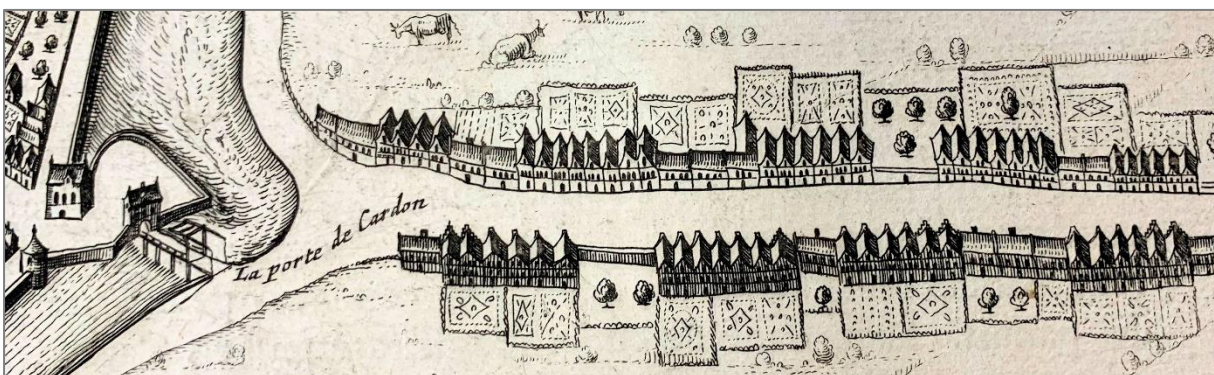 La porte de Cardon